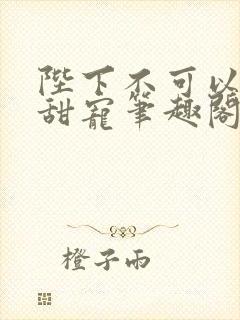 陛下不可以
甜宠笔趣阁
橙子雨